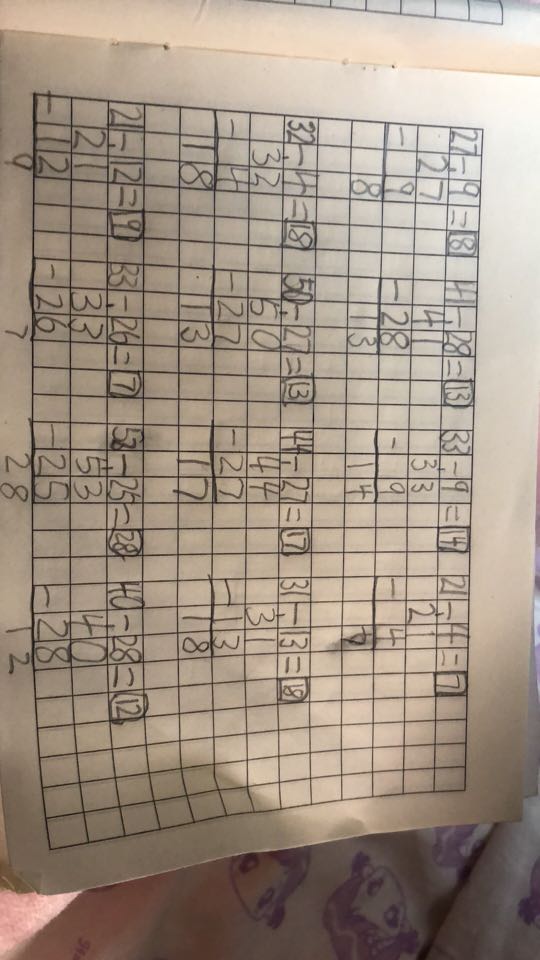 27-9=8 41-28=13 33-9=14 21-4=7
27 41 33 21
- 9 -28 - 9 - 4
8 13 14 7
32-4=18 50-27=13 44-27=17 31-13=18
32 50 44 31
- 4 -27 -27 -13
18 13 17 18
21-12=9 33-26=7 53-25=28 40-28=12
21 33 53 40
-12 -26 -25 -28
9 7 28 12